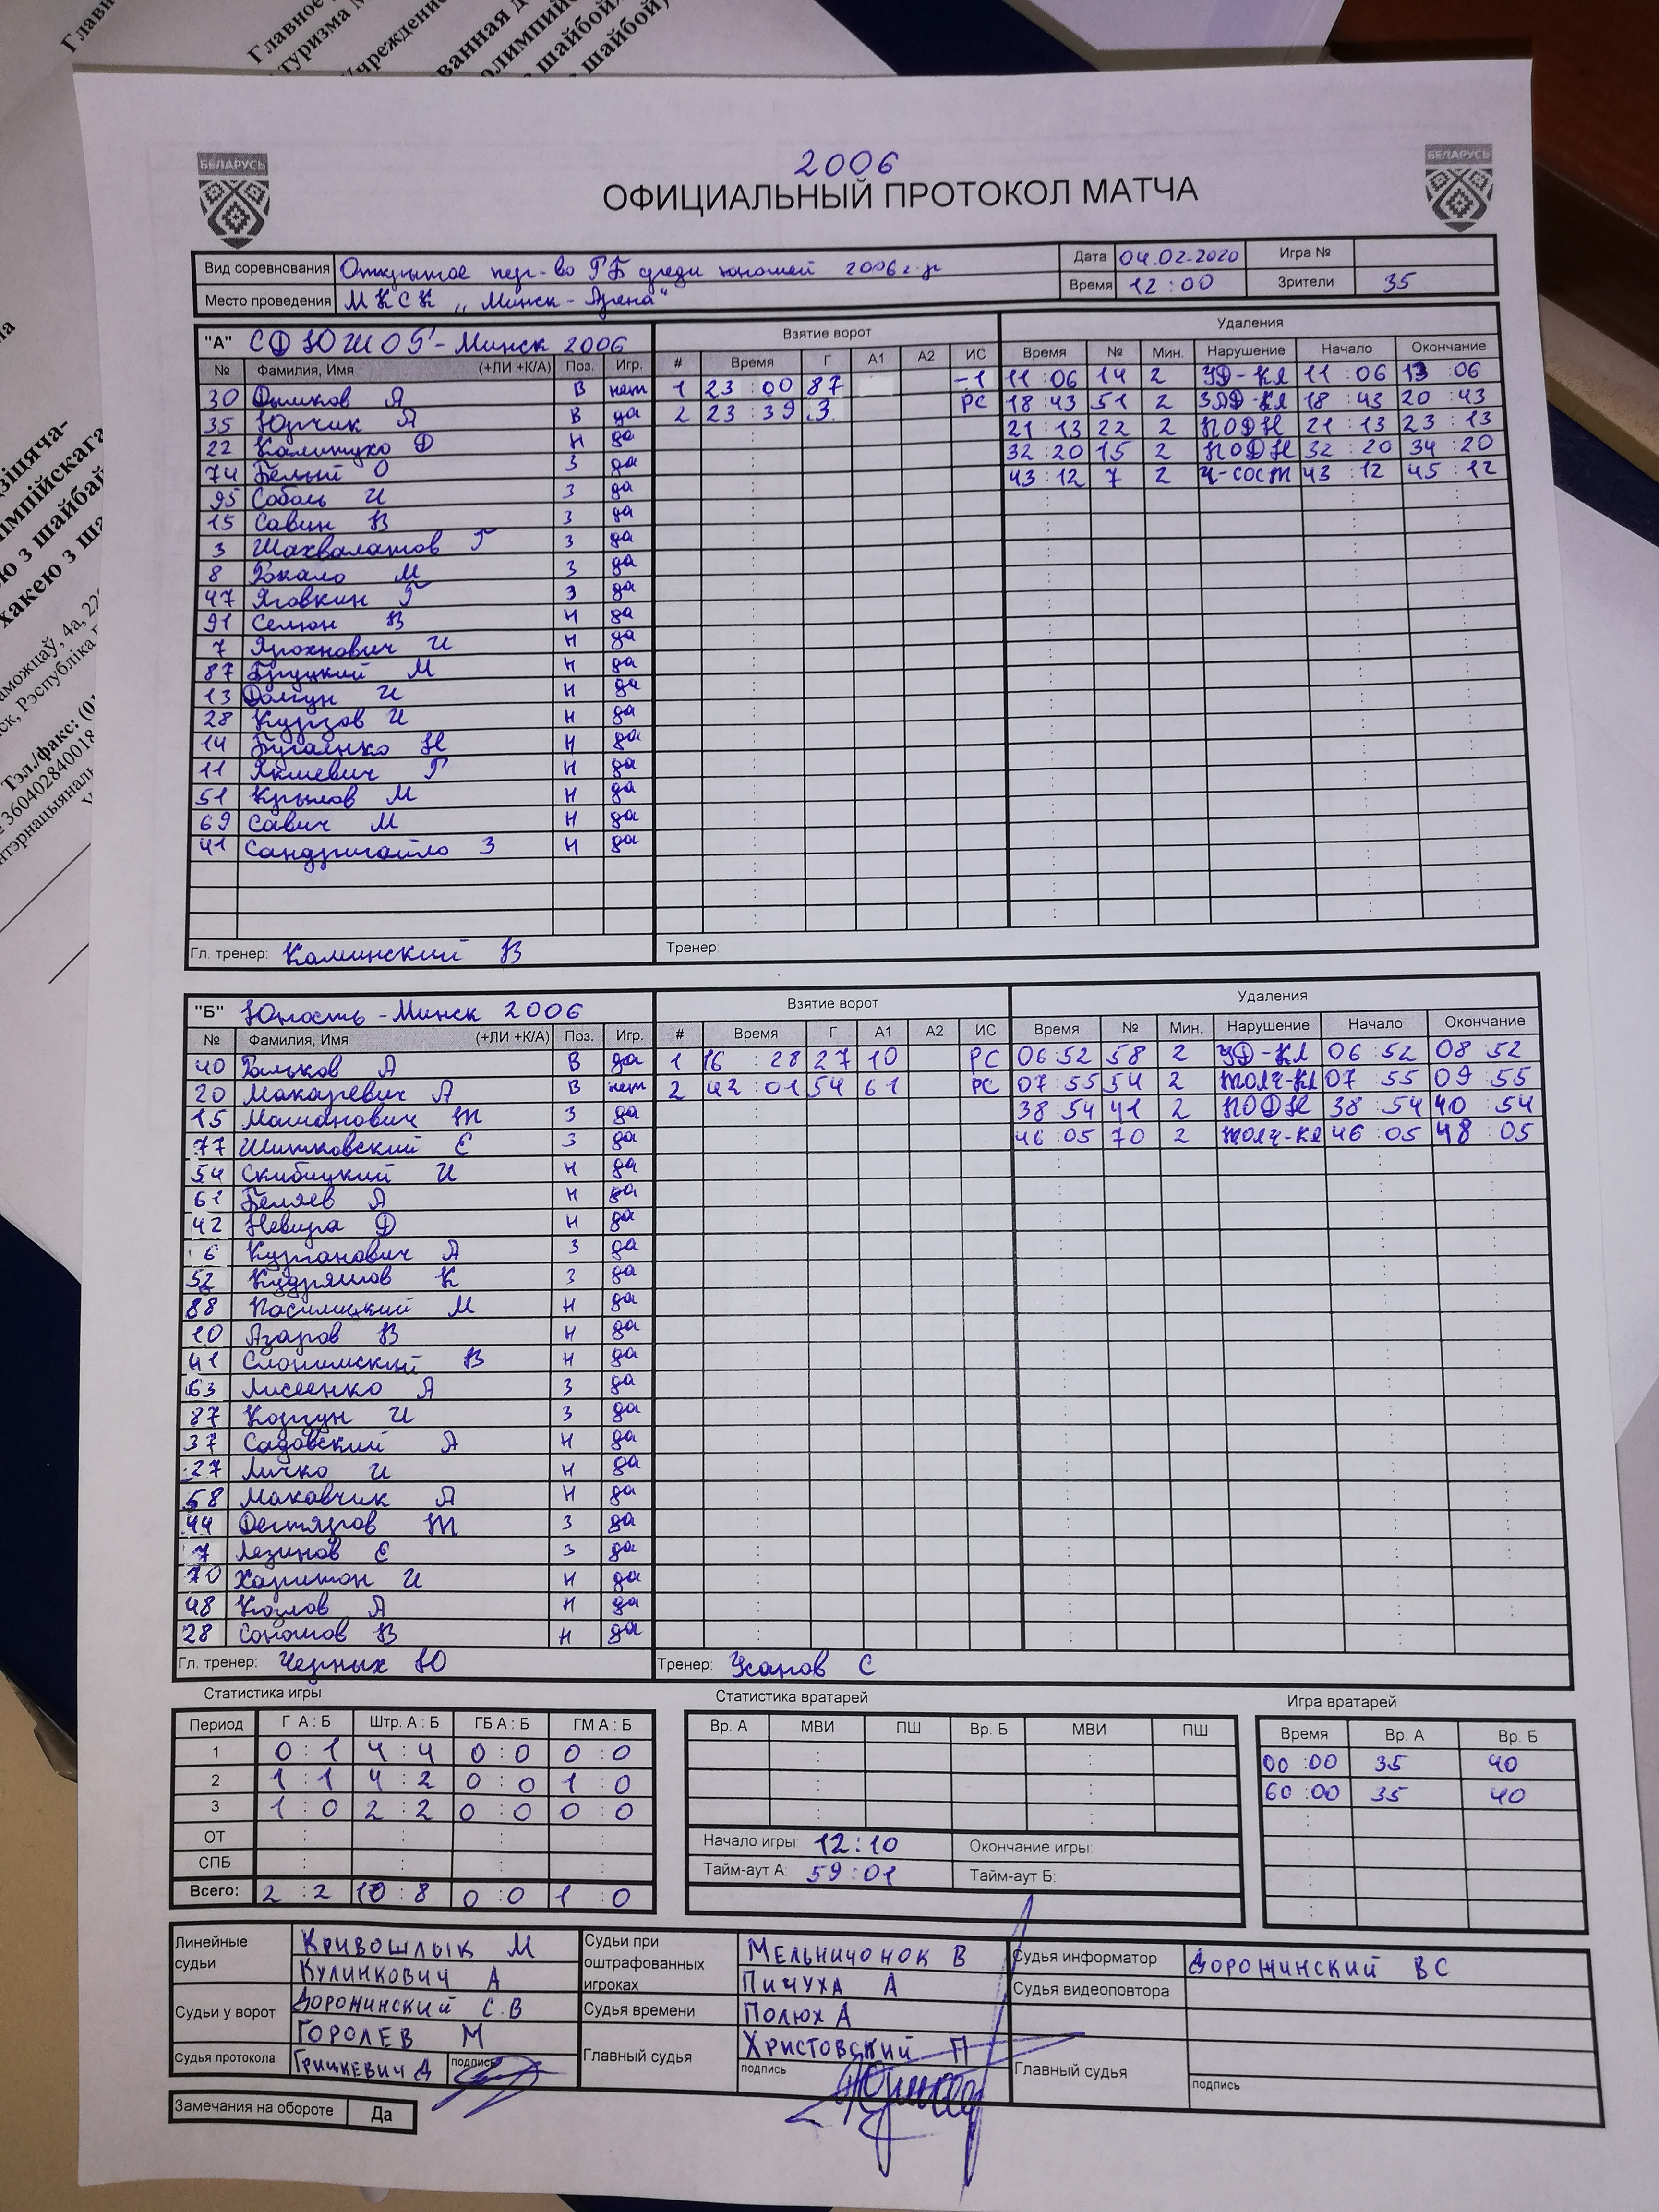 2006
БЕЛАРУСЬ
БЕЛАРУСЬ
ОФИЦИАЛЬНЫЙ ПРОТОКОЛ МАТЧА
Вид соревнования Открытое пер-во РБ среди юношей 2006г.р Дата 04.02.2020 Игра №
Место проведения МКСК "Минск-Арена" Время 12:00 Зрители 35
"А" СДЮШОР-Минск 2006 Взятие ворот Удаления
№ Фамилия, Имя (+ЛИ +К/А) Поз. Игр. # Время Г А1 А2 ИС Время № Мин. Нарушение Начало Окончание
30 Дымков А В нет 1 23:00 87 -1 11:06 14 2 УД-КЛ 11:06 13:06
35 Юрчик А В да 2 23:39 3 РС 18:43 51 2 ЗАД-КЛ 18:43 20:43
22 Калитухо Ф Н да 21:13 22 2 ПОДН 21:13 23:13
74 Белый О З да 32:20 15 2 ПОДН 32:20 34:20
95 Соболь И З да 43:12 7 2 Ч-СОСТ 43:12 45:12
15 Савин В З да
3 Шахвалатов Г З да
8 Рокало М З да
47 Яговкин Г З да
91 Семон В Н да
7 Ярохнович И Н да
87 Бруцкий М Н да
13 Долгун И Н да
28 Курзов И Н да
14 Бугаенко Н Н да
11 Якшевич Г Н да
51 Крылов М Н да
69 Савич М Н да
41 Сандригайло З Н да
Гл. тренер: Каминский В Тренер:
"Б" Юность-Минск 2006 Взятие ворот Удаления
№ Фамилия, Имя (+ЛИ +К/А) Поз. Игр. # Время Г А1 А2 ИС Время № Мин. Нарушение Начало Окончание
40 Рольков А В да 1 16:28 27 10 РС 06:52 58 2 УД-КЛ 06:52 08:52
20 Макаревич А В нет 2 42:01 54 61 РС 07:55 54 2 ТОЛЧ-КЛ 07:55 09:55
15 Машанович Т З да 38:54 41 2 ПОДН 38:54 40:54
77 Шитковский Е З да 46:05 70 2 ТОЛЧ-КЛ 46:05 48:05
54 Скибицкий И Н да
61 Беляев А Н да
42 Невира Ф Н да
6 Курганович А З да
52 Кудряшов К З да
88 Пасилицкий М Н да
10 Азаров В Н да
41 Слонимский В Н да
63 Лисеенко А З да
87 Коргун И З да
37 Садовский А Н да
27 Личко И Н да
58 Маковчик А Н да
44 Дегтяров Т З да
7 Лезинов Е З да
70 Харитон И Н да
48 Козлов А Н да
28 Соношов В Н да
Гл. тренер: Черных Ю Тренер: Усанов С
Статистика игры Статистика вратарей Игра вратарей
Период Г А : Б Штр. А : Б ГБ А : Б ГМ А : Б Вр. А МВИ ПШ Вр. Б МВИ ПШ Время Вр. А Вр. Б
1 0:1 4:4 0:0 0:0 00:00 35 40
2 1:1 4:2 0:0 1:0 60:00 35 40
3 1:0 2:2 0:0 0:0
ОТ Начало игры: 12:10 Окончание игры:
СПБ Тайм-аут А: 59:01 Тайм-аут Б:
Всего: 2:2 10:8 0:0 1:0
Линейные судьи КРИВОШЛЫК М Судьи при оштрафованных игроках МЕЛЬНИЧОНОК В Судья информатор ДОРОНИНСКИЙ ВС
КУЛИНКОВИЧ А ПИЧУХА А Судья видеоповтора
Судьи у ворот ДОРОНИНСКИЙ С.В Судья времени ПОЛЮХ А
ГОРОЛЕВ М Главный судья ХРИСТОВСКИЙ П Главный судья
Судья протокола ГРИЦКЕВИЧ Д подпись подпись подпись
Замечания на обороте Да